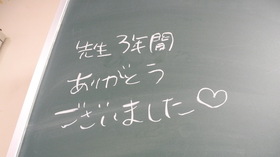 先生3年間
ありがとう
ございました♡